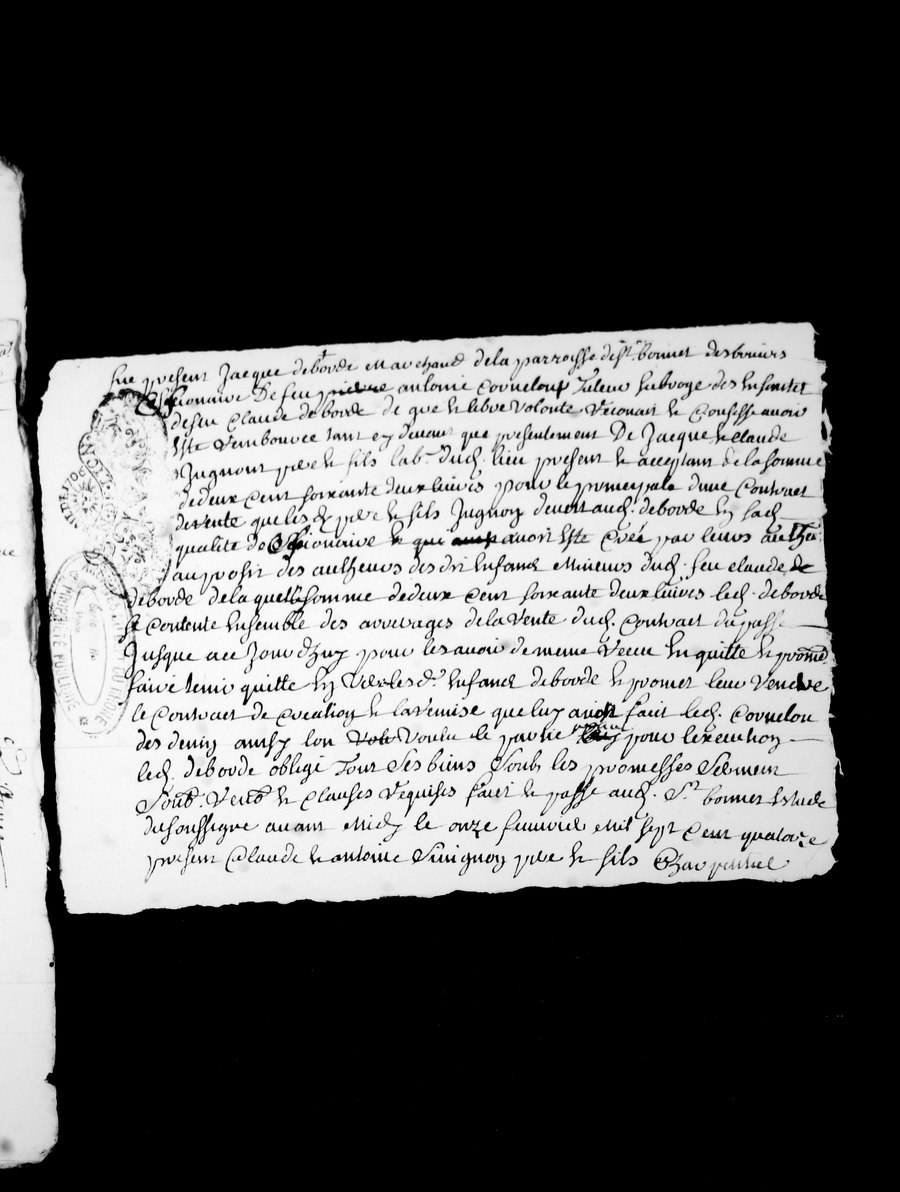 fut present Jacque deborde Marchand dela parroisse de st. bonnet des bruiers
Cessionaire De feu antoine Corneloup Tuteur subroge des Enfantes
de feu Claude deborde de gre et libre volonte reconait et Confesse avoir
Este Rembource tant cy devant que presentement De Jacque et claude
Jugnon pere et fils lab. dud. lieu present et acceptans de la somme
de deux cent soixante deux livres pour le principale dune Contract
de vente que lesd pere et fils Jugnon devent aud. deborde En sad
qualite de Cessionaire et qui avoit Este Creé par leurs autheu
au profit des autheurs desdit Enfand Mineurs dud. feu claude de
deborde de laquelle somme de deux cent soixante deux livres led. deborde
se Contente Ensemble des arrerages dela Vente dud. Contract du passe
Jusque a ce Jourdhuy pour les avoir de meme Receu En quitte et promet
faire tenir quitte En Vers lesd. Enfand deborde et promet leur Rendre
le Contract de Creation et la remise que luy avoit fait led. Cornelou
des denier ainsy lon Voulu le partie pour lexecution
led. deborde oblige Tout ses biens Soub les promesses Serment
Soub. Renon. et Clauses requises fait et passe aud. St. bonnet Estude
du soussigne avant Midy le onze feuvrier Mil sept Cent quatorze
present Claude et antoine Sivignon pere et fils Charpentiel